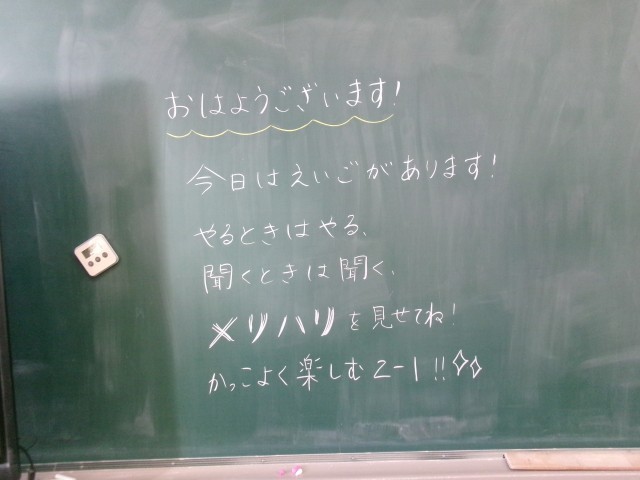 おはようございます!
今日はえいごがあります!
やるときはやる、
聞くときは聞く、
メリハリを見せてね!
かっこよく楽しむ2-1!!